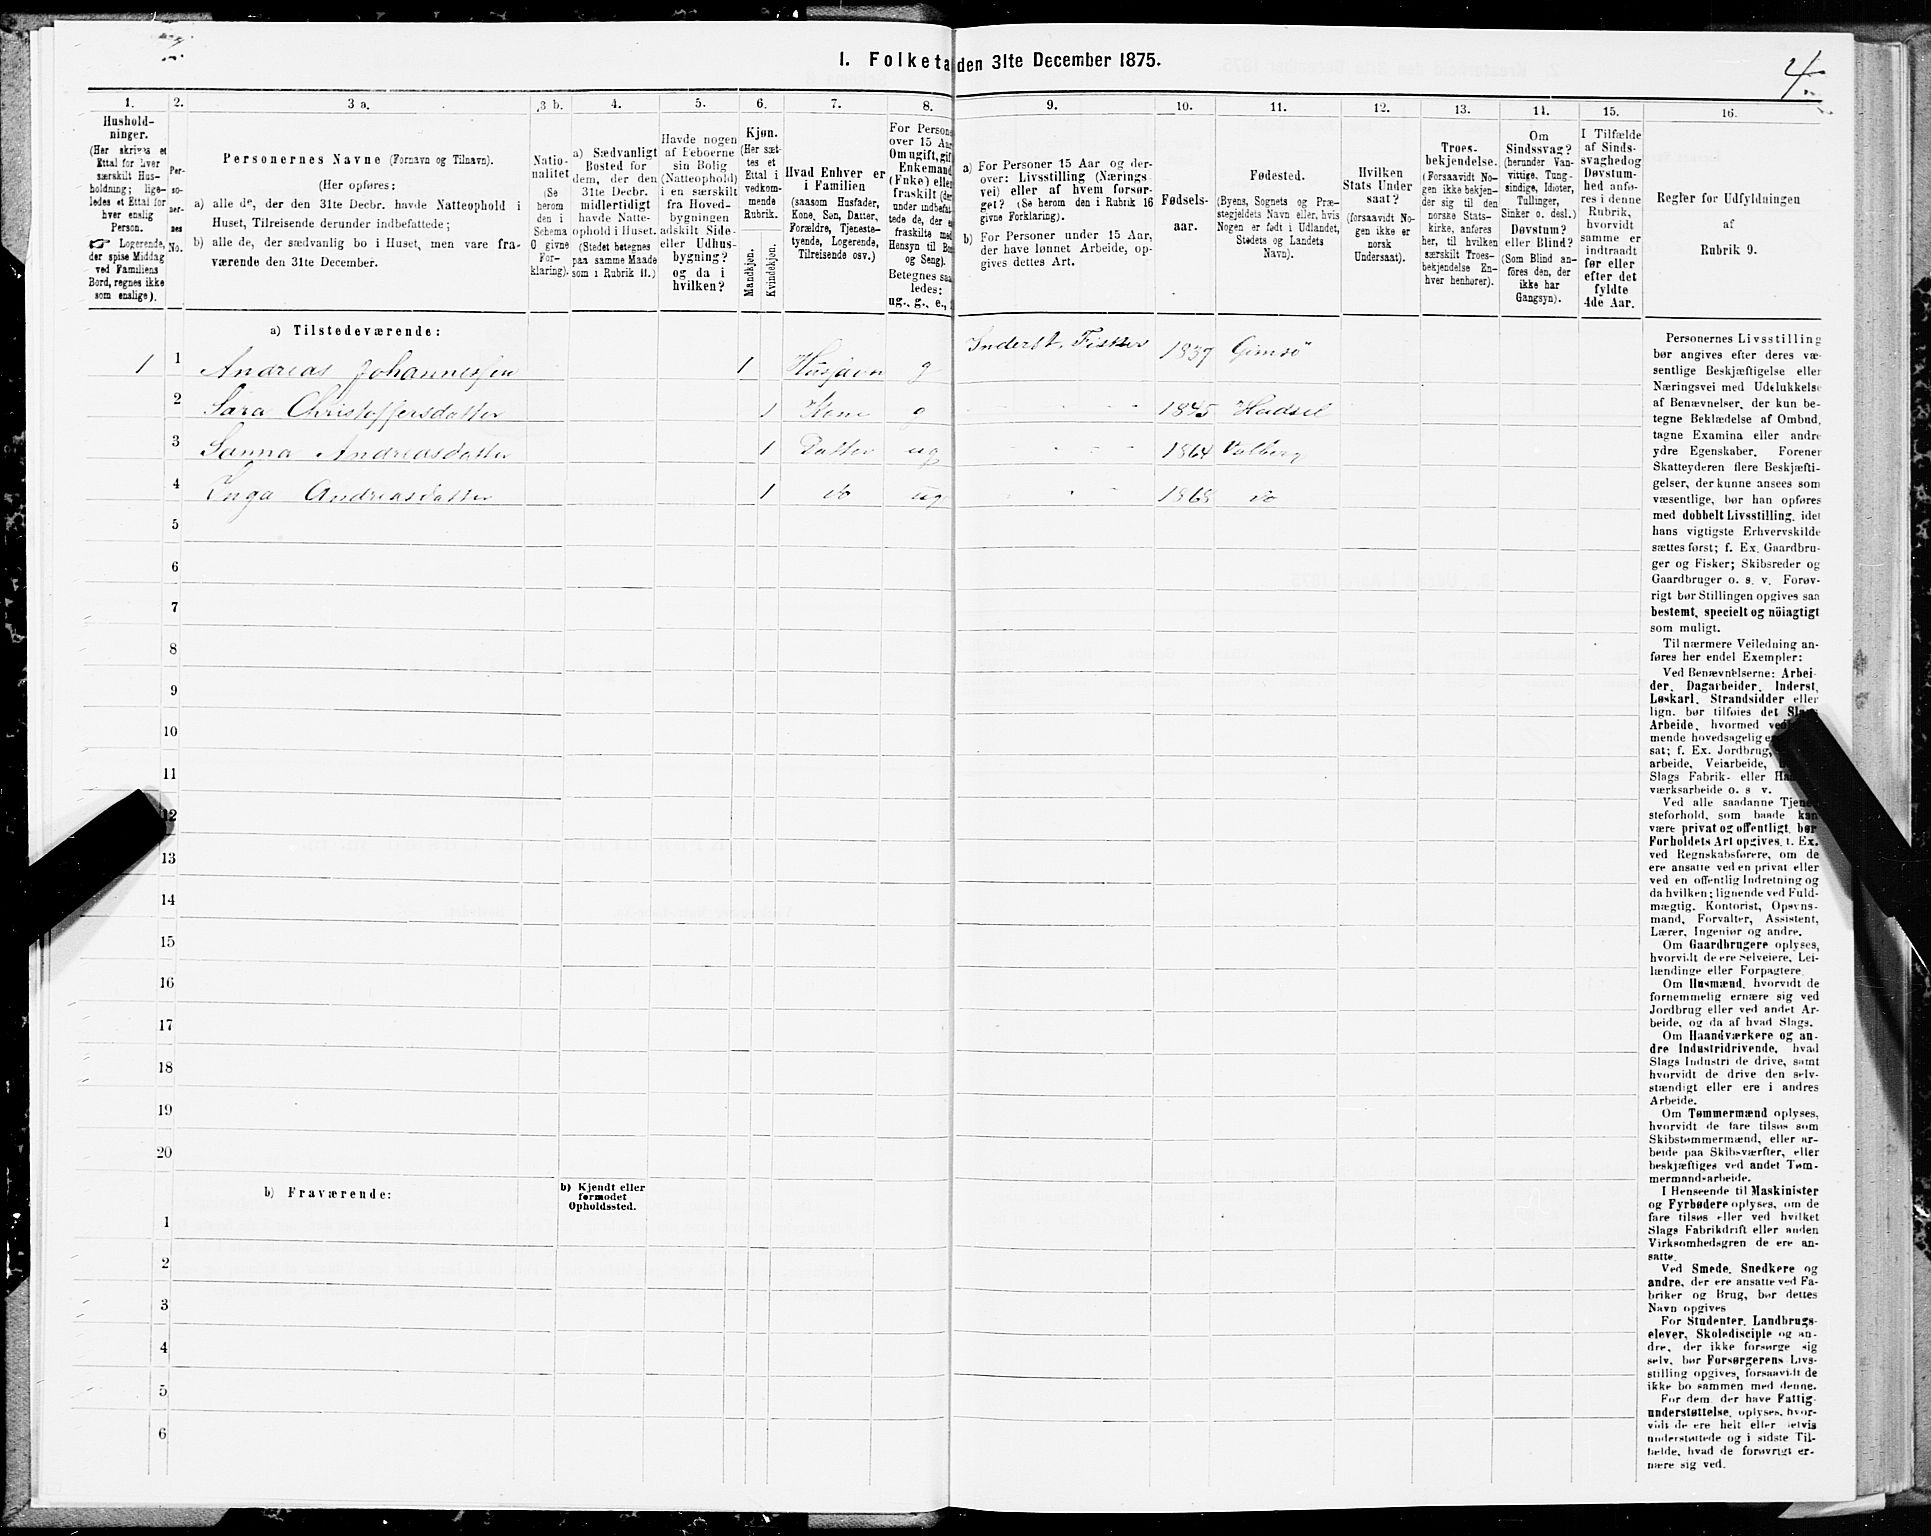 1. Folketa den 31te December 1875.
4.
1. 2. 3 a. 3 b. 4. 5. 6. 7. 8. 9. 10. 11. 12. 13. 14. 15. 16.
Hushold-
ninger.
(Her skrives et
Ettal for hver
særskilt Hus-
holdning; lige-
ledes et Ettal for
hver enslig
Person.
☞ Logerende,
der spise Middag
ved Familiens
Bord, regnes ikke
som enslige).
Per-
so-
ner-
nes
No.
Personernes Navne (Fornavn og Tilnavn).
(Her opføres:
a) alle de, der den 31te Decbr. havde Natteophold i
Huset, Tilreisende derunder indbefattede;
b) alle de, der sædvanlig bo i Huset, men vare fra-
værende den 31te December.
Natio-
nalitet
(Se
herom
den i
Schema
0 givne
For-
klaring).
a) Sædvanligt
Bosted for
dem, der den
31te Decbr.
midlertidigt
havde Natte-
ophold i Huset.
(Stedet betegnes
paa samme Maade
som i Rubrik 11.)
Havde nogen
af Beboerne
sin Bolig
(Natteophold)
i en særskilt
fra Hoved-
bygningen
adskilt Side-
eller Udhus-
bygning?
og da i
hvilken?
Kjøn.
(Her sæt-
tes et
Ettal i
vedkom-
mende
Rubrik.
Mandkjøn.
Kvindekjøn.
Hvad Enhver er
i Familien
(saasom Husfader,
Kone, Søn, Datter,
Forældre, Tjeneste-
tyende, Logerende,
Tilreisende osv.)
For Persone
over 15 Aar
Om ugift, gif
Enkemand
(Enke) elle
fraskilt (der
under indbefat-
tede de, der e
fraskilte med
Hensyn til Bo
og Seng).
Betegnes saa
ledes:
ug., g., e.,
a) For Personer 15 Aar og der-
over: Livsstilling (Nærings-
vei) eller af hvem forsør-
get? (Se herom den i Rubrik 16
givne Forklaring).
b) For Personer under 15 Aar,
der have lønnet Arbeide, op-
gives dettes Art.
Fødsels-
aar.
Fødested.
(Byens, Sognets og Præ-
stegjeldets Navn eller, hvis
Nogen er født i Udlandet,
Stedets og Landets
Navn).
Hvilken
Stats Under
saat?
(forsaavidt No-
gen ikke er
norsk
Undersaat).
Troes-
bekjendelse.
(Forsaavidt No-
gen ikke bekjen-
der sig til den
norske Stats-
kirke, anføres
her, til hvilken
særskilt Troes-
bekjendelse En-
hver henhører).
Om
Sindssvag?
(herunder Van-
vittige, Tung-
sindige, Idioter,
Tullinger,
Sinker o. desl.)
Døvstum?
eller Blind?
(Som Blind an-
føres den, der
ikke har
Gangsyn).
I Tilfælde
af Sinds-
svaghedog
Døvstum-
hed anfø-
res i denne
Rubrik,
hvorvidt
samme er
indtraadt
før eller
efter det
fyldte
4de Aar.
Regler for Udfyldningen
af
Rubrik 9.
a) Tilstedeværende:
1 1 Andreas Johannessen 1 Husfavn g Inderst, Fisker 1839 Gimsö
2 Sara Christoffersdatter 1 Kone g 1845 Hadsel
3 Sanna Andreasdatter 1 Datter ug 1864 Valberg
4 Inga Andreasdatter 1 do ug 1868 do
5
6
7
8
9
10
11
12
13
14
15
16
17
18
19
20
b) Fraværende:
b) Kjendt eller
formodet
Opholdssted.
1
2
3
4
5
6
Personernes Livsstilling
bør angives efter deres væ-
sentlige Beskjæftigelse eller
Næringsvei med Udelukkelse
af Benævnelser, der kun be-
tegne Beklædelse af Ombud,
tagne Examina eller andre
ydre Egenskaber. Forener
Skatteyderen flere Beskjæfti-
gelser, der kunne ansees som
væsentlige, bør han opføres
med dobbelt Livsstilling, idet
hans vigtigste Erhvervskilde
sættes først; f. Ex. Gaardbru-
ger og Fisker; Skibsreder og
Gaardbruger o. s. v. Forøv-
rigt bør Stillingen opgives saa
bestemt, specielt og nöiagtigt
som muligt.
Til nærmere Veiledning an-
føres her endel Exempler:
Ved Benævnelserne: Arbei-
der, Dagarbeider, Inderst,
Løskarl, Strandsidder eller
lign. bør tilføies det Slags
Arbeide, hvormed
mende hovedsagelig
sat; f. Ex. Jordbrug,
arbeide, Veiarbeide,
Slags Fabrik- eller
værksarbeide o. s v.
Ved alle saadanne Tjene-
steforhold, som baade kan
være privat og offentligt, bør
Forholdets Art opgives, t. Ex.
ved Regnskabsførere, om de
ere ansatte ved en privat eller
ved en offentlig Indretning og
da hvilken; lignende ved Fuld-
mægtig, Kontorist, Opsyns-
mand, Forvalter, Assistent,
Lærer, Ingeniør og andre.
Om Gaardbrugere oplyses,
hvorvidt de ere Selveiere, Lei-
lændinge eller Forpagtere.
Om Husmænd, hvorvidt de
fornemmelig ernære sig ved
Jordbrug eller ved andet Ar-
beide, og da af hvad Slags.
Om Haandværkere og an-
dre Industridrivende, hvad
Slags Industri de drive, samt
hvorvidt de drive den selv-
stændigt eller ere i andres
Arbeide.
Om Tømmermænd oplyses,
hvorvidt de fare tilsøs som
Skibstømmermænd, eller ar-
beide paa Skibsværfter, eller
beskjæftiges ved andet Tøm-
mermandsarbeide.
I Henseende til Maskinister
og Fyrbødere oplyses, om de
fare tilsøs eller ved hvilket
Slags Fabrikdrift eller anden
Virksomhedsgren de ere an-
satte.
Ved Smede, Snedkere og
andre, der ere ansatte ved Fa-
briker og Brug, bør dettes
Navn opgives
For Studenter, Landbrugs-
elever, Skoledisciple og an-
dre, der ikke forsørge sig
selv, bør Forsørgerens Livs-
stilling opgives, forsaavidt de
ikke bo sammen med denne.
For dem, der have Fattig-
understøttelse, oplyses, hvor-
vidt de ere helt eller delvis
understøttede og i sidste Til-
fælde, hvad de forøvrigt er-
nære sig ved.